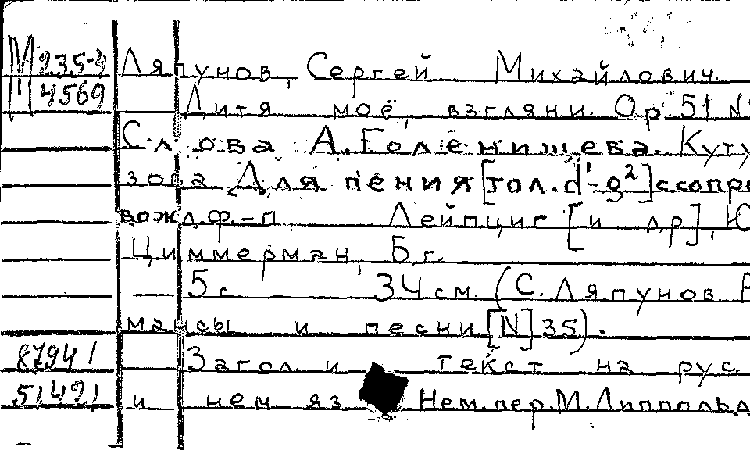 М 235-2 Ляпунов, Сергей Михайлович.
4569 Дитя моё, взгляни. Ор. 51 N
Слова А. Голенищева-Куту
зова Для пения [тол. d¹-g²] с сопро
вожд. ф.-п. Лейпциг [и др], Ю
Циммерман, Б.г.
5 с. 34 см. (С. Ляпунов Р
мансы и песни [N] 35).
87941 Загол и текст на рус
51491 и нем яз Нем. пер. М. Липпольд